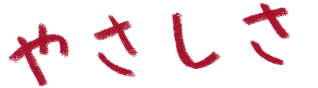 やさしさ